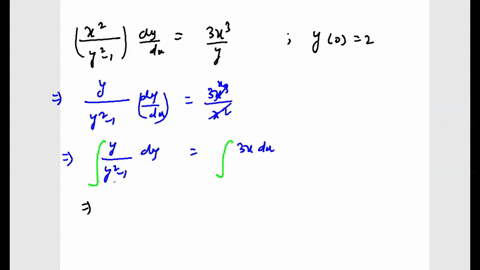 (x²/(y²-1)) dy/dx = 3x³/y ; y(0)=2
⇒ y/(y²-1) (dy/dx) = 3x³/x²
⇒ ∫ y/(y²-1) dy = ∫ 3x dx
⇒